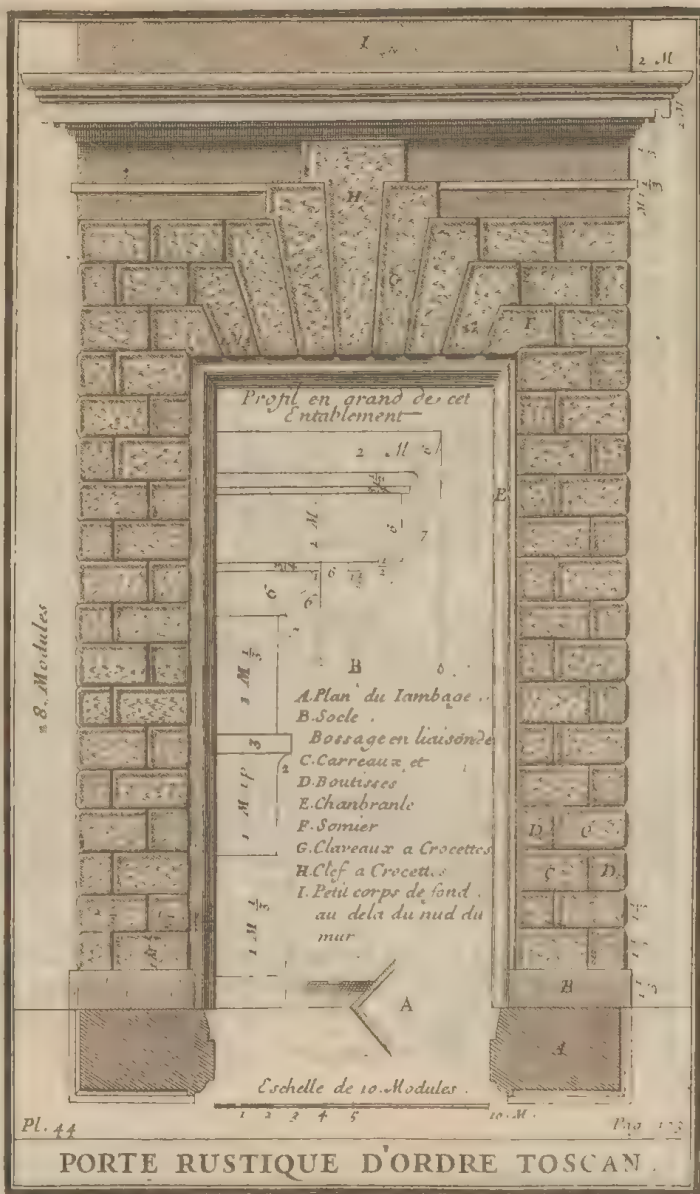 I
2 M
2 M
1/3
M 1 1/3
H
G
F
E
Profil en grand de cet
Entablement
2 M
2 M
6
7
6
B
A. Plan du Iambage.
B. Socle.
Bossage en liaison de
C. Carreaux et
D. Boutisses
E. Chanbranle
F. Somier
G. Claveaux a Crocettes
H. Clef a Crocettes
I. Petit corps de fond
au dela du nud du
mur
1 M 1/3
3
2
1 M 1/3
8. Modules
D C
C D
B
A
A
Eschelle de 10. Modules.
1 2 3 4 5 10. M.
Pl. 44
Pag.
PORTE RUSTIQUE D'ORDRE TOSCAN.